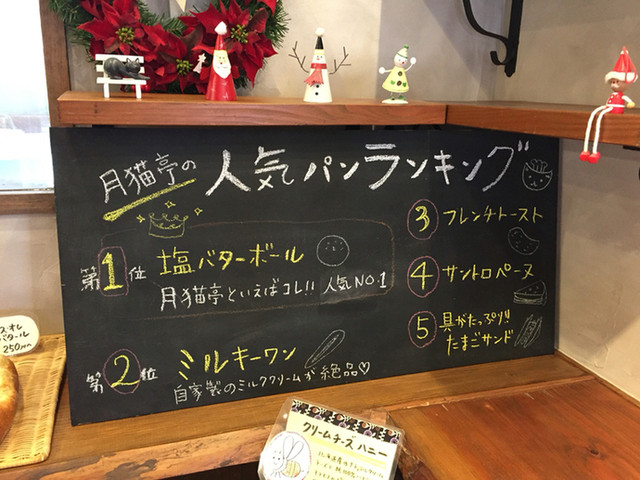 月猫亭の
人気パンランキング
第1位 塩バターボール
月猫亭といえばコレ!! 人気NO.1
第2位 ミルキーワン
自家製のミルククリームが絶品♡
③ フレンチトースト
④ サントロペーヌ
⑤ 具がたっぷり!!
たまごサンド
250yen
クリームチーズハニー